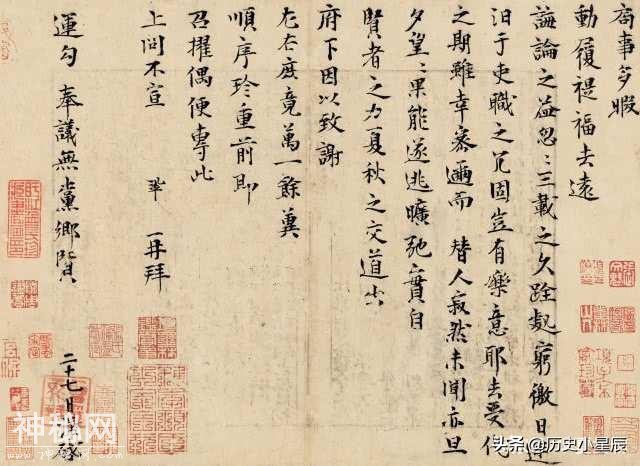 局事多暇
動履禔福去遠
誨論之益忽〻三載之久跧處窮徼日迷
汨于吏職之冗固豈有樂意耶去受代
之期雖幸密邇而替人寂然未聞亦旦
夕望〻果能遂逃曠弛實自
賢者之力夏秋之交道出
府下因以致謝
左右庶竟萬一餘冀
順序珍重前即
召擢偶便專此
上問不宣 鞏 再拜
運勾奉議無黨鄉賢
二十七日
神秘网
头条 @历史小星辰